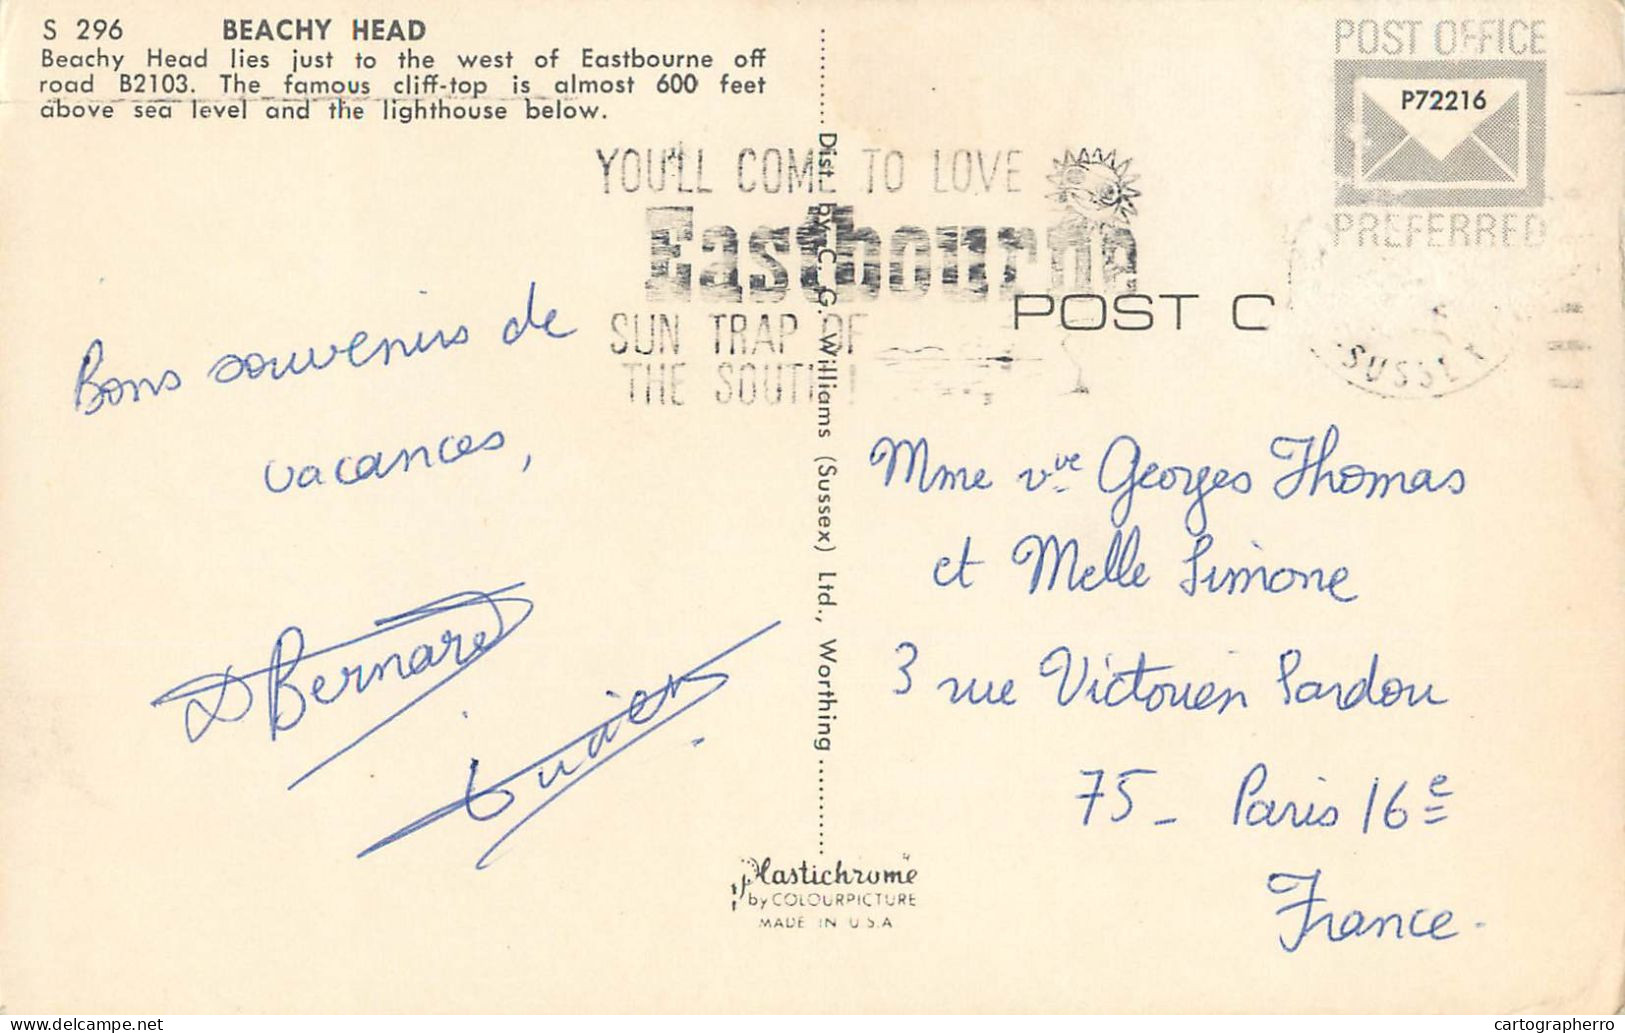 S 296 BEACHY HEAD
Beachy Head lies just to the west of Eastbourne off
road B2103. The famous cliff-top is almost 600 feet
above sea level and the lighthouse below.
POST OFFICE
P72216
PREFERRED
YOU'LL COME TO LOVE
Eastbourne
SUN TRAP OF
THE SOUTH!
POST C
SUSSEX
Dist. by C. G. Williams (Sussex) Ltd., Worthing
Bons souvenirs de
vacances,
D Bernard
Mme vve Georges Thomas
et Melle Simone
3 rue Victorien Sardou
75 - Paris 16e
France.
Plastichrome
by COLOURPICTURE
MADE IN U.S.A
cartographerro